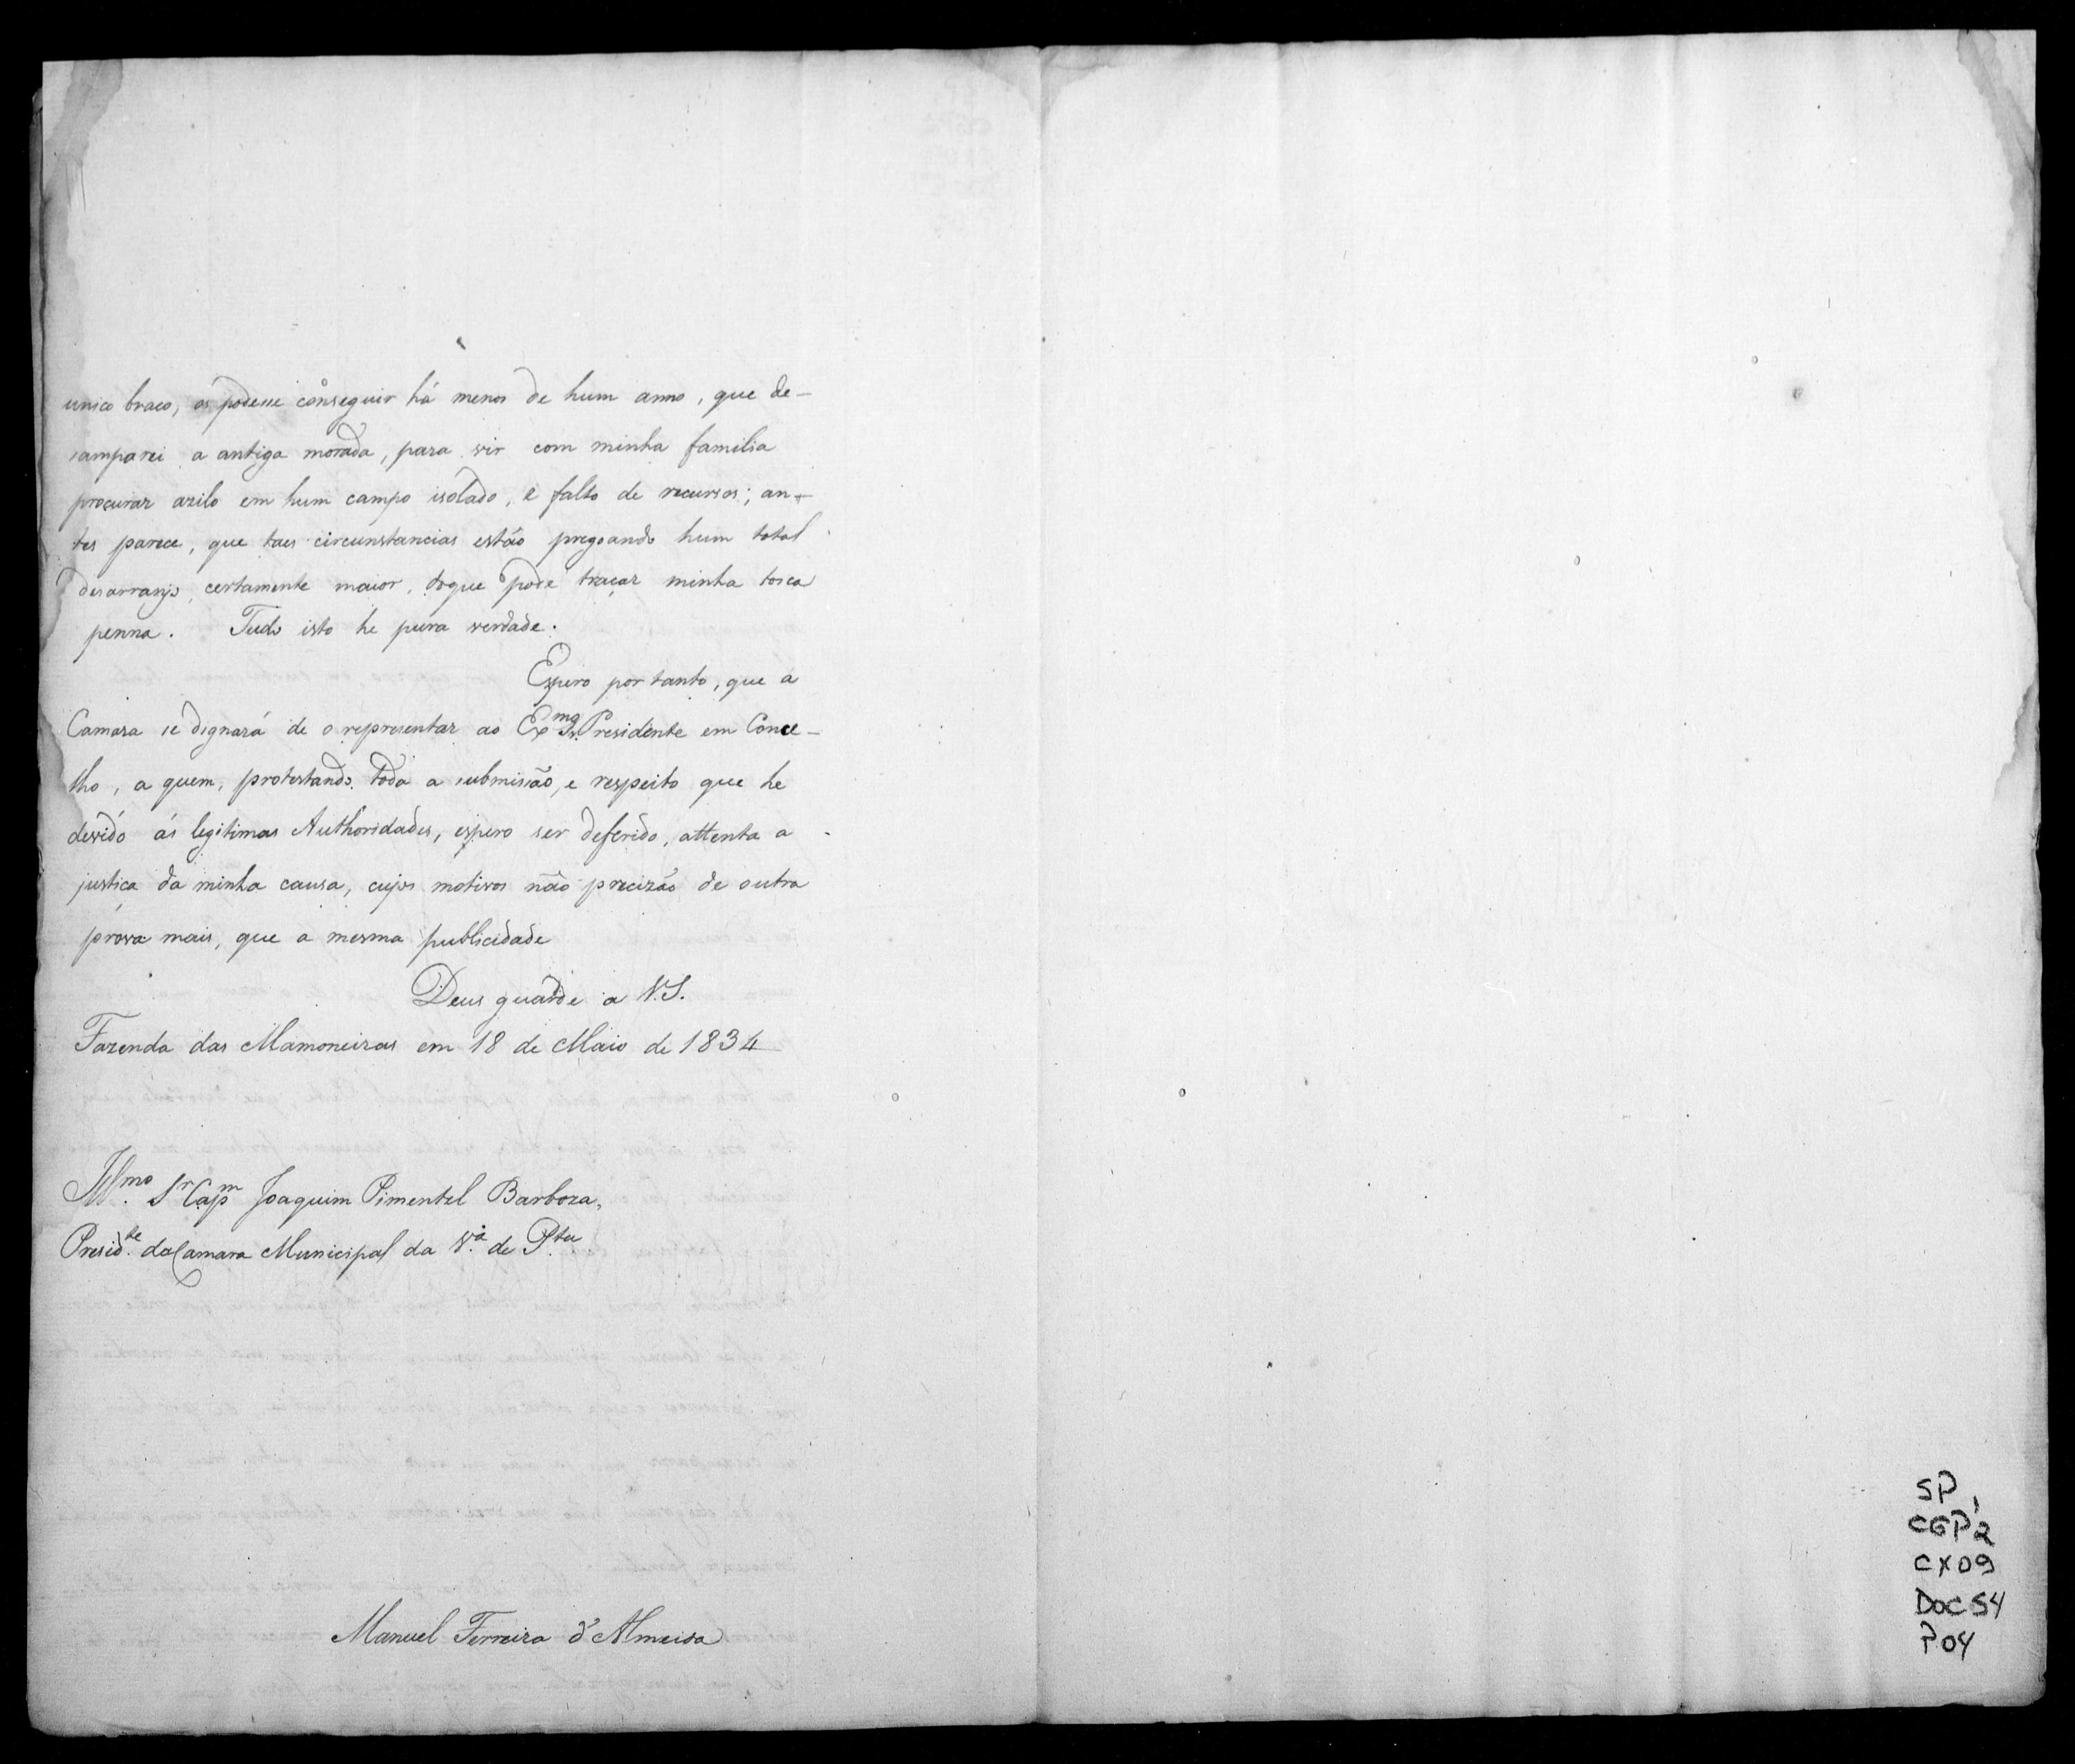 unico braço, os podesse conseguir há menos de hum anno, que de-
samparei a antiga morada, para vir com minha familia
procurar azilo em hum campo isolado, e falto de recursos; an-
tes parece, que taes circunstancias estão pregoando hum total
desarranjo, certamente maior, doque pode traçar minha tosca
penna. Tudo isto he pura verdade.
Espero por tanto, que a
Camara se dignará de o representar ao Exmo Sr. Presidente em Conce-
lho, a quem, protestando toda a submissão, e respeito que he
devido ás legitimas Authoridades, espero ser deferido, attenta a
justiça da minha causa, cujos motivos não precizão de outra
prova mais, que a mesma publicidade
Deus guarde a V.S.
Fazenda das Mamoneiras em 18 de Maio de 1834
Illmo. Sr Capm Joaquim Pimentel Barboza,
Presidte. da Camara Municipal da Va. de
Manuel Ferreira d'Almeida
SP
CGP 1/2
CX 09
DOC 54
P 04